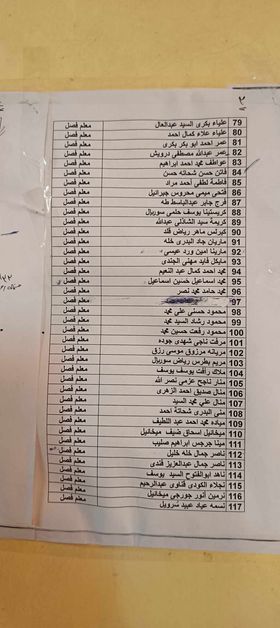 ٢
79 علياء بكرى السيد عبدالعال معلم فصل
80 علياء علاء كمال احمد معلم فصل
81 عمر احمد ابو بكر بكرى معلم فصل
82 عمر عبدالله مصطفي درويش معلم فصل
83 عواطف محمد احمد ابراهيم معلم فصل
84 فاتن حسن شحاته حسن معلم فصل
85 فاطمة لطفي أحمد مراد معلم فصل
86 فتحى ميمى محروس جبرائيل معلم فصل
87 فرج جابر عبدالباسط طه معلم فصل
88 كريستينا يوسف حلمى سوريال معلم فصل
89 كريمة سيد الشاذلي عبدالله معلم فصل
90 كيرلس ماهر رياض معلم فصل
91 ماريان جاد البدرى خله معلم فصل
92 مارينا امين ورد عيسى معلم فصل
93 مايكل فايد مهنى الجندى معلم فصل
94 محمد احمد كمال عبد النعيم معلم فصل
95 محمد اسماعيل حسين اسماعيل معلم فصل
96 محمد حامد محمد نصر معلم فصل
97
98 محمود حسني علي محمد معلم فصل
99 محمود رشاد السيد محمد معلم فصل
100 محمود رفعت حسين محمد معلم فصل
101 مرفت ناجي شهدى جوده معلم فصل
102 مريانه مرزوق موسى رزق معلم فصل
103 مريم بطرس رياض سوريال معلم فصل
104 ملاك رأفت يوسف يوسف معلم فصل
105 منار ناجح عزمي نصر الله معلم فصل
106 منال صديق احمد الزهرى معلم فصل
107 منال علي محمد السيد معلم فصل
108 منى البدرى شحاتة احمد معلم فصل
109 مياده محمد احمد عبد اللطيف معلم فصل
110 ميخائيل اسحاق ضيف ميخائيل معلم فصل
111 مينا جرجس ابراهيم صليب معلم فصل
112 ناصر جمال خله خليل معلم فصل
113 ناصر جمال عبدالعزيز فندى معلم فصل
114 ناهد ابوالفتوح السيد يوسف معلم فصل
115 نجلاء الكودى قناوى عبدالرحيم معلم فصل
116 نرمين انور جورجى ميخائيل معلم فصل
117 نسمه عياد عبيد شرويل معلم فصل